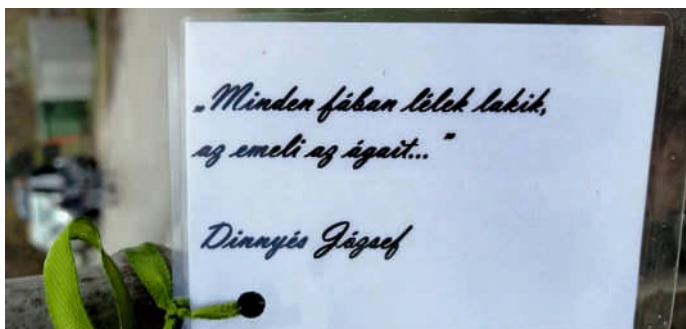 „Minden fában lélek lakik,
az emeli az ágait..."
Dinnyés József